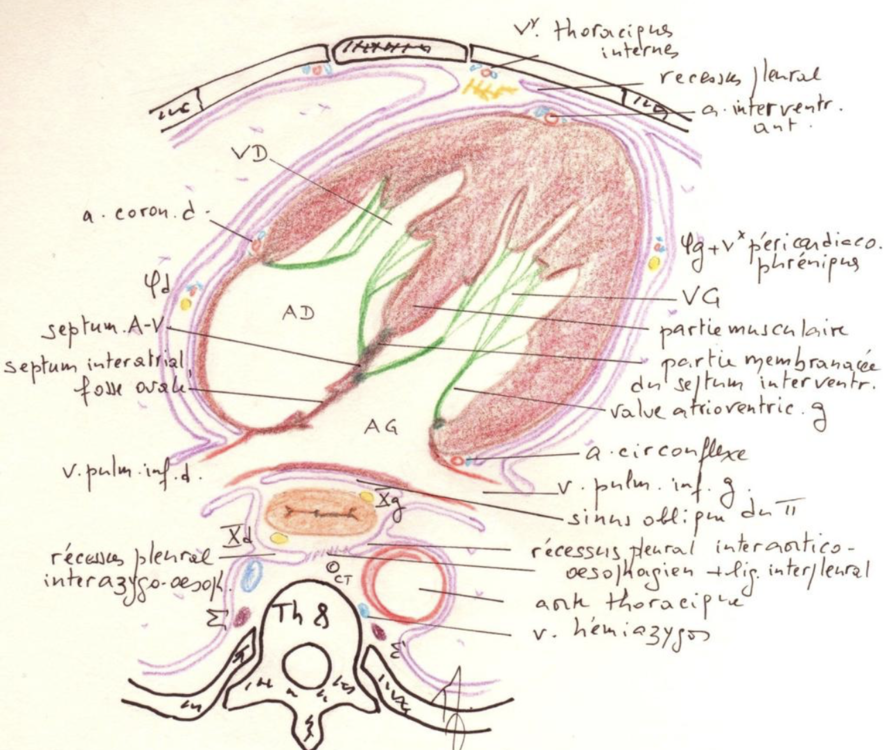 vˣ. thoraciques
internes
recessus pleural
a. interventr.
ant.
VD
a. coron. d.
φg + vˣ péricardiaco.
phréniques
φd
AD
VG
septum A-V
partie musculaire
septum interatrial
partie membranacée
du septum interventr.
fosse ovale
valve atrioventric. g
AG
a. circonflexe
v. pulm. inf. d.
v. pulm. inf. g.
Xg
sinus oblique du π
Xd
récessus pleural
interazygo-oesoph.
récessus pleural interaortico-
oesophagien + lig. interpleural
CT
aorte thoracique
Σ
Th 8
v. hémiazygos
Σ